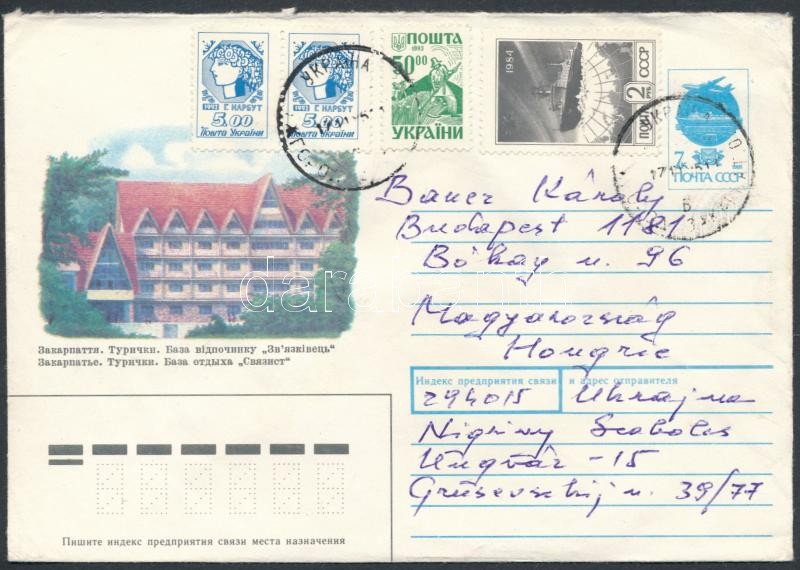 1992 Г. НАРБУТ
5.00
Пошта України
1992 Г. НАРБУТ
5.00
Пошта України
ПОШТА
1993
50.00
УКРАЇНИ
1984
2 РУБ.
ПОЧТА СССР
7
ПОЧТА СССР
УКРАЇНА
Bauer Károly
Budapest 1181
Bókay u. 96
Magyarország
Hongrie
darabanth
Закарпаття. Турички. База відпочинку „Зв'язківець“
Закарпатье. Турички. База отдыха „Связист“
Индекс предприятия связи и адрес отправителя
294015 Ukrajna
Nigriny Szabolcs
Ungvár - 15
Grusevszkij u. 39/77
Пишите индекс предприятия связи места назначения